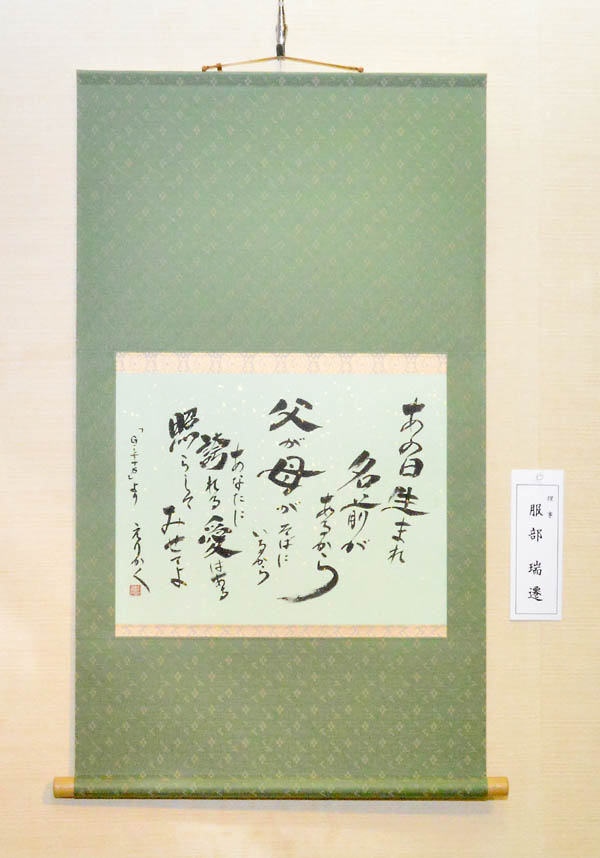 あの日生まれ
名前が
あるから
父が母が
そばに
いるから
あなたに
誇れる愛はある
照らして
みせてよ
えりかく
理事
服部 瑞遷